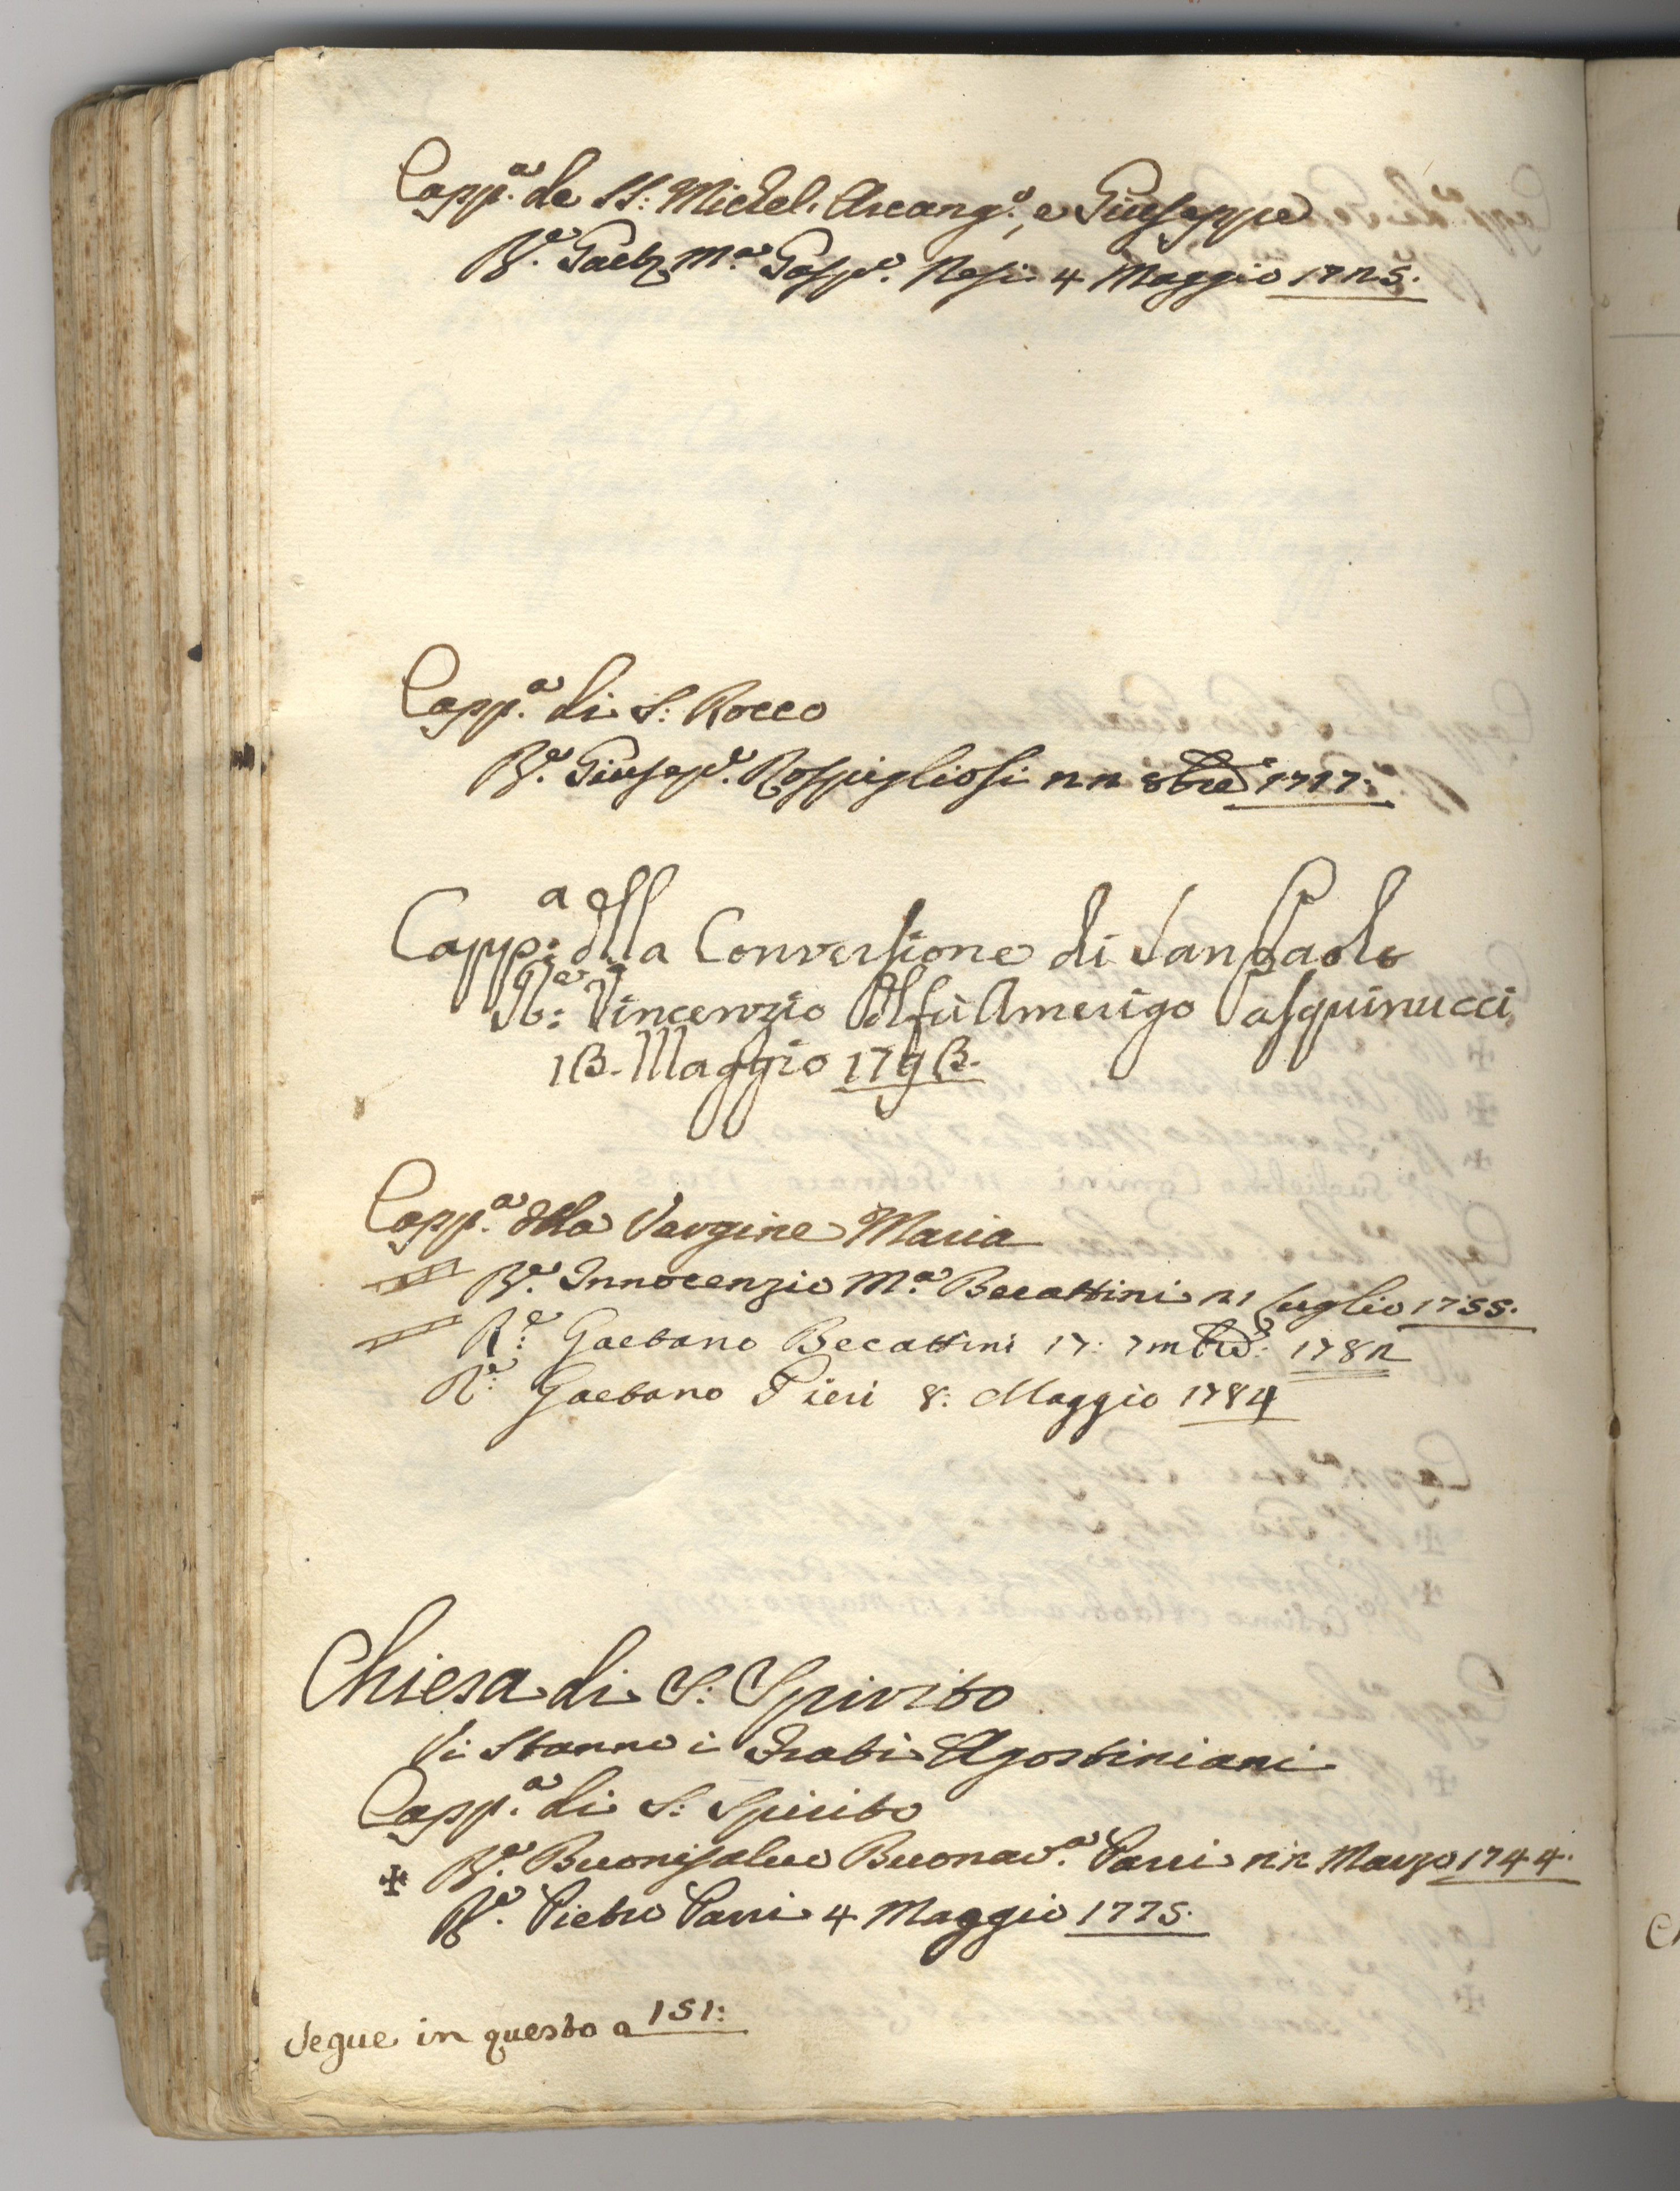 Capp.ª de SS: Michel Arcang.º, e Giuseppe
R.e Gaet. M.ª Gasp.e Nesi 4 Maggio 1725.
Capp.ª di S: Rocco
R.e Giusep.e Rospigliosi 22 8bre 1717:
Capp:ª della Conversione di San Paolo
R:e Vincenzio Amerigo Pasquinucci
13. Maggio 1793.
Capp.ª della Vergine Maria
R.e Innocenzio M.ª Becattini 21 Luglio 1755.
R:e Gaetano Becattini 17: 7mbre: 1782
R:e Gaetano Pieri 8: Maggio 1784
Chiesa di S: Spirito
Vi stanno i Frati Agostiniani
Capp.ª di S: Spirito
✠ R.e Buonisalvo Buonav.ª Parri 22 Marzo 1744.
R.e Pietro Parri 4 Maggio 1775.
Segue in questo a 151: